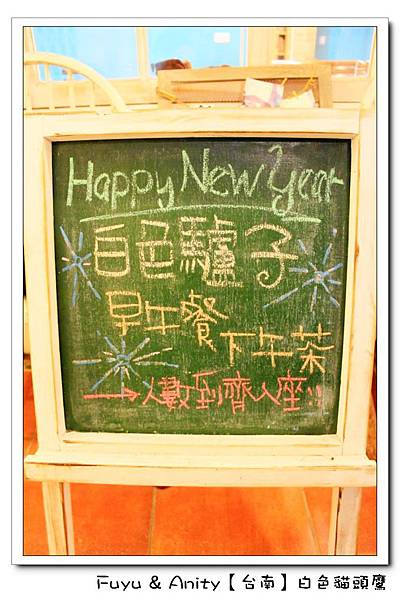 Happy New Year
白色驢子
早午餐
下午茶
→人數到齊入座!!
Fuyu & Anity【台南】白色貓頭鷹